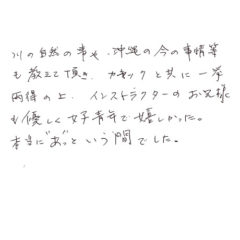 川の自然の事や、沖縄の今の事情等
も教えて頂き、カヤックと共に一挙
両得の上、インストラクターのお兄様
も優しく好青年で嬉しかった。
本当に“あっ”という間でした。